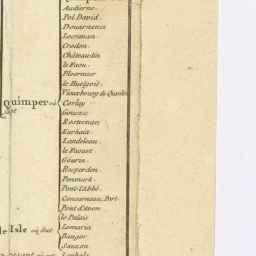 Audierne.
Pol David.
Douarnenez
Locronan
Crodon.
Châteaulin
le Faou.
Ploermor
le Huelgoet
Vieuxbourg de Quintin
quimper où Corlay
est
Gourin
Rostrenan
Karhaix
Landeleau
le Faouet
Géurin.
Rosperden.
Penmark.
Pont-l'Abbé.
Concarneau, Port.
Pont d'Aven
le Palais
Isle où est Lomaria
Bangor
Sauzon